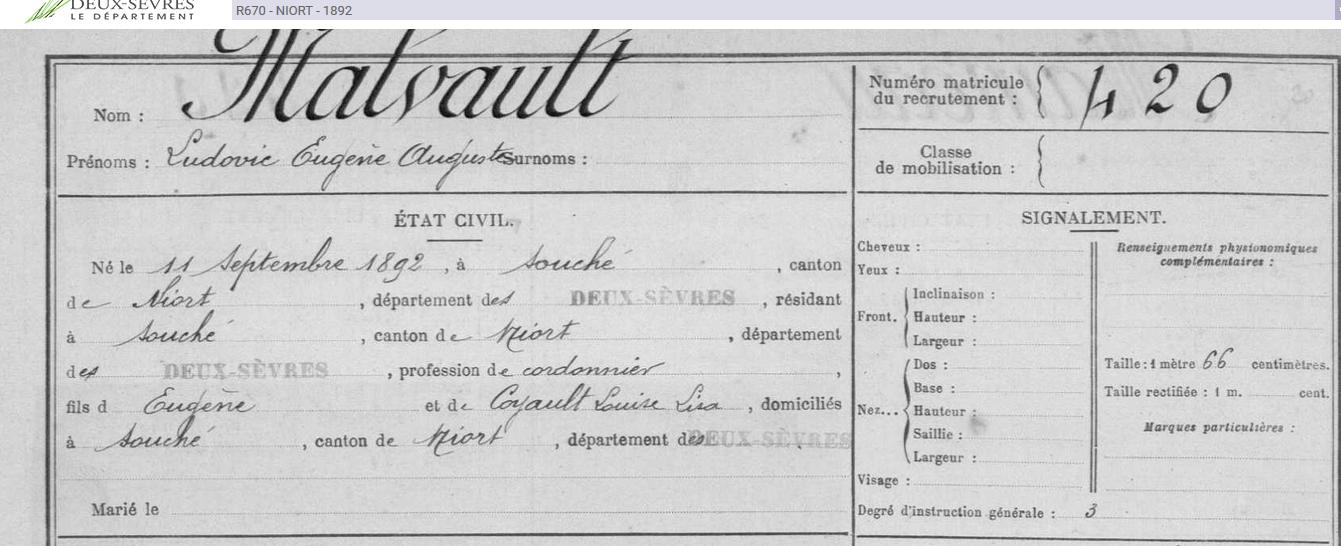 DEUX-SÈVRES
LE DÉPARTEMENT
R670 - NIORT - 1892
Nom : Malvault
Prénoms : Ludovic Eugène Auguste Surnoms :
Numéro matricule
du recrutement : 420
Classe
de mobilisation :
ÉTAT CIVIL.
Né le 11 Septembre 1892, à Souché, canton
de Niort, département des DEUX-SÈVRES, résidant
à Souché, canton de Niort, département
des DEUX-SÈVRES, profession de cordonnier,
fils d Eugène et de Coyault Louise Lisa, domiciliés
à Souché, canton de Niort, département des DEUX-SÈVRES
Marié le
SIGNALEMENT.
Cheveux :
Yeux :
Front. Inclinaison :
Hauteur :
Largeur :
Nez... Dos :
Base :
Hauteur :
Saillie :
Largeur :
Visage :
Degré d'instruction générale : 3
Renseignements physionomiques
complémentaires :
Taille : 1 mètre 66 centimètres.
Taille rectifiée : 1 m. cent.
Marques particulières :